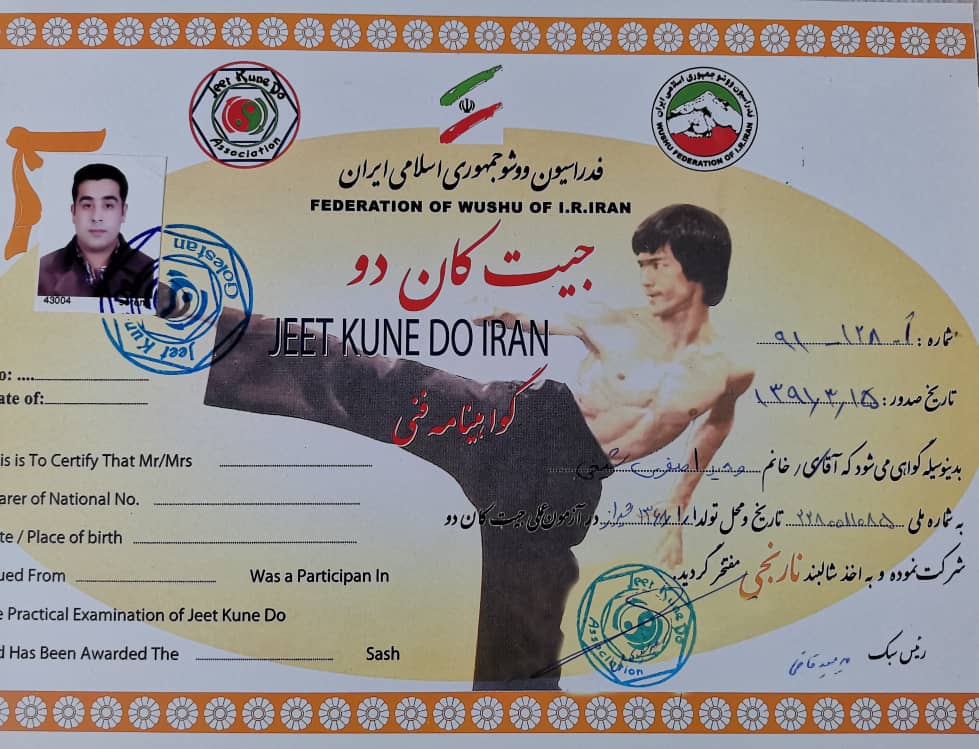 Jeet Kune Do
Association
فدراسیون ووشو جمهوری اسلامی ایران
WUSHU FEDERATION OF I.R.IRAN
فدراسیون ووشو جمهوری اسلامی ایران
FEDERATION OF WUSHU OF I.R.IRAN
جیت کان دو
JEET KUNE DO IRAN
گواهینامه فنی
43004
Golestan
Jeet Kun
شماره : آ - ۱۲۸ - ۹۱
تاریخ صدور : ۱۳۹۱/۳/۱۵
بدینوسیله گواهی می شود که آقای / خانم وحید
به شماره ملی ۲۲۸۰۰۱۱۰۸۵ تاریخ و محل تولد شیراز در آزمون عملی جیت کان دو
شرکت نموده و به اخذ شالبند نارنجی مفتخر گردید.
رئیس سبک
o: ....
ate of:
is is To Certify That Mr/Mrs
arer of National No.
te / Place of birth
ued From Was a Participan In
e Practical Examination of Jeet Kune Do
d Has Been Awarded The Sash
Jeet Kune Do
Association